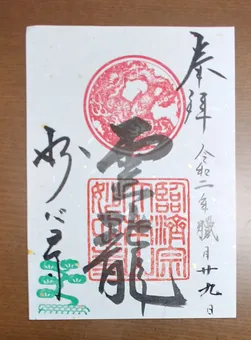 奉拝
令和二年臘月廿九日
雲龍
臨濟宗
妙心寺